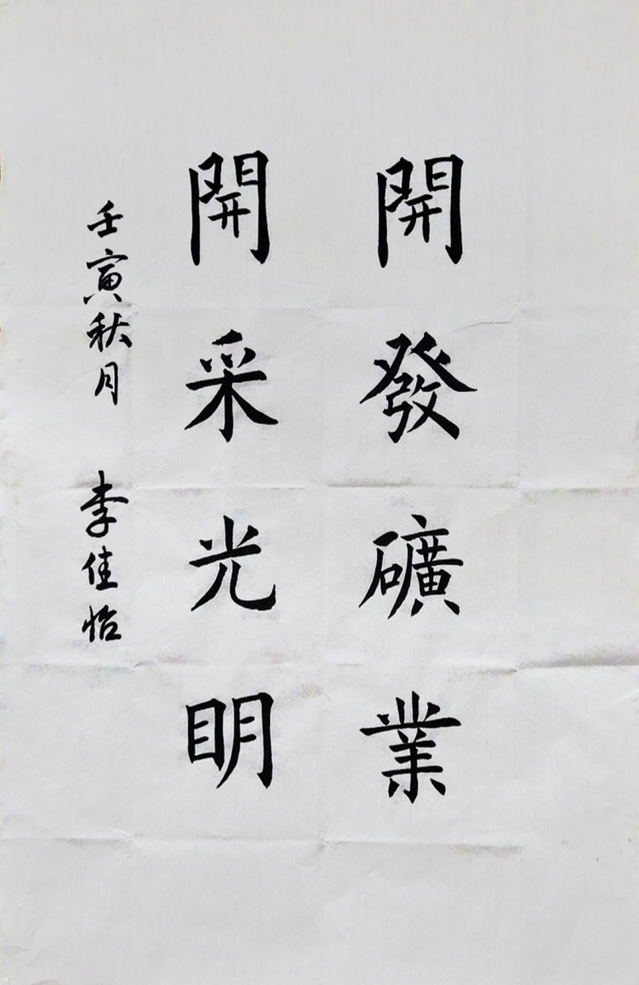 開發礦業
開采光明
壬寅秋月 李佳怡